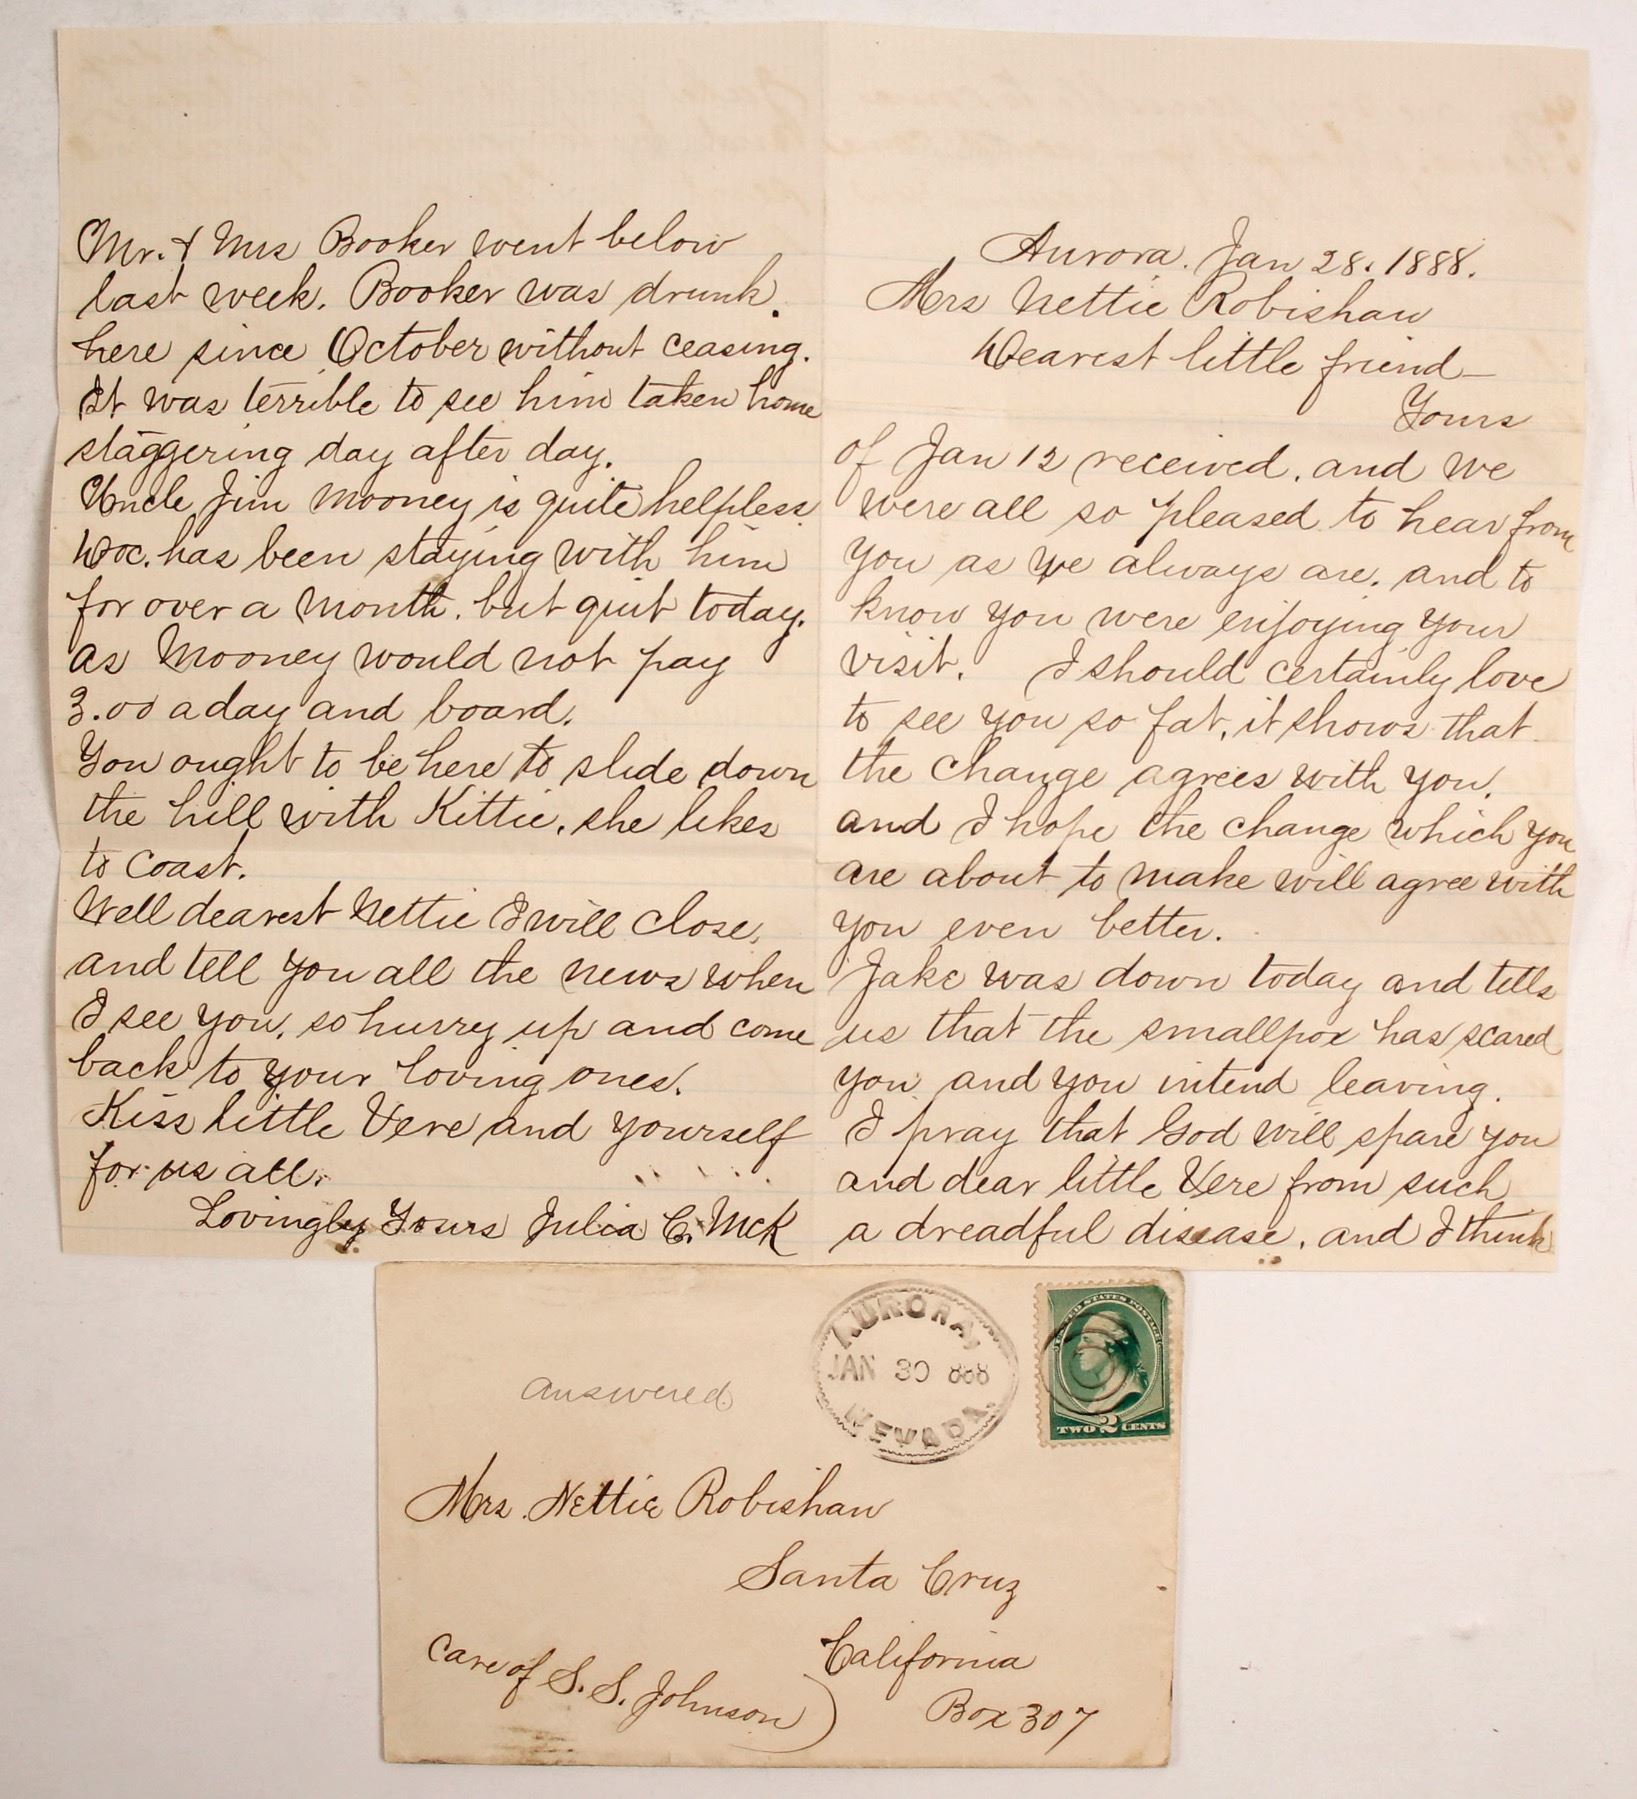 Aurora. Jan 28. 1888.
Mrs Nettie Robishaw
Dearest little friend—
Yours
of Jan 12 received, and we
were all so pleased to hear from
you as we always are, and to
know you were enjoying your
visit. I should certainly love
to see you so fat, it shows that
the change agrees with you,
and I hope the change which you
are about to make will agree with
you even better.
Jake was down today and tells
us that the smallpox has scared
you and you intend leaving.
I pray that God will spare you
and dear little Vere from such
a dreadful disease, and I think
Mr. & Mrs Booker went below
last week. Booker was drunk
here since October without ceasing.
It was terrible to see him taken home
staggering day after day.
Uncle Jim Mooney is quite helpless
Doc. has been staying with him
for over a month, but quit today,
as Mooney would not pay
3.00 a day and board.
You ought to be here to slide down
the hill with Kittie, she likes
to coast.
Well dearest Nettie I will close,
and tell you all the news when
I see you, so hurry up and come
back to your loving ones.
Kiss little Vere and yourself
for us all.
Lovingly Yours Julia C. McK
AURORA,
JAN 30 888
NEVADA.
UNITED STATES POSTAGE
TWO 2 CENTS
answered
Mrs. Nettie Robishaw
Santa Cruz
California
Care of S. S. Johnson)
Box 307